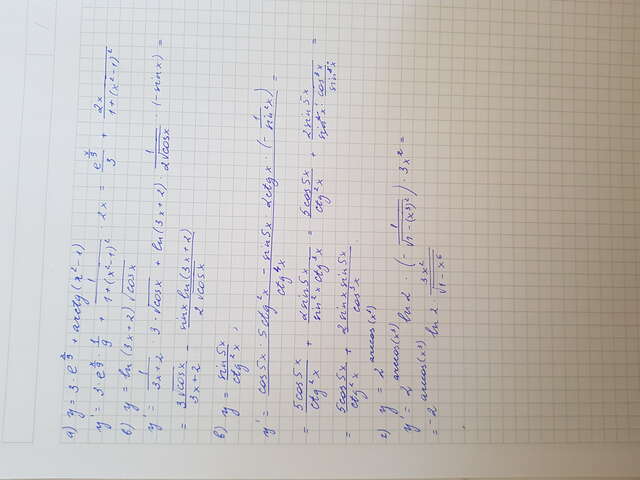 а) y = 3·e^(x/9) + arctg(x²-1)
y' = 3·e^(x/9)·1/9 + 1/(1+(x²-1)²) · 2x = e^(x/9)/3 + 2x/(1+(x²-1)²)
в) y = ln(3x+2) √cosx
y' = 1/(3x+2) 3·√cosx + ln(3x+2)· 1/(2√cosx) · (-sinx) =
= 3√cosx/(3x+2) - sinx ln(3x+2)/(2√cosx)
в) y = sin5x/ctg²x ,
y' = (cos5x · 5ctg²x - sin5x · 2ctgx · (-1/sin²x))/ctg⁴x =
= 5cos5x/ctg²x + 2sin5x/(sin²x ctg³x) = 5cos5x/ctg²x + 2sin5x/(sin²x · cos³x/sin³x) =
= 5cos5x/ctg²x + 2sinx sin5x/cos³x
г) y = 2^(arccos(x³))
y' = 2^(arccos(x³)) ln2 · (- 1/√(1-(x³)²)) · 3x² =
= -2^(arccos(x³)) ln2 · 3x²/√(1-x⁶)